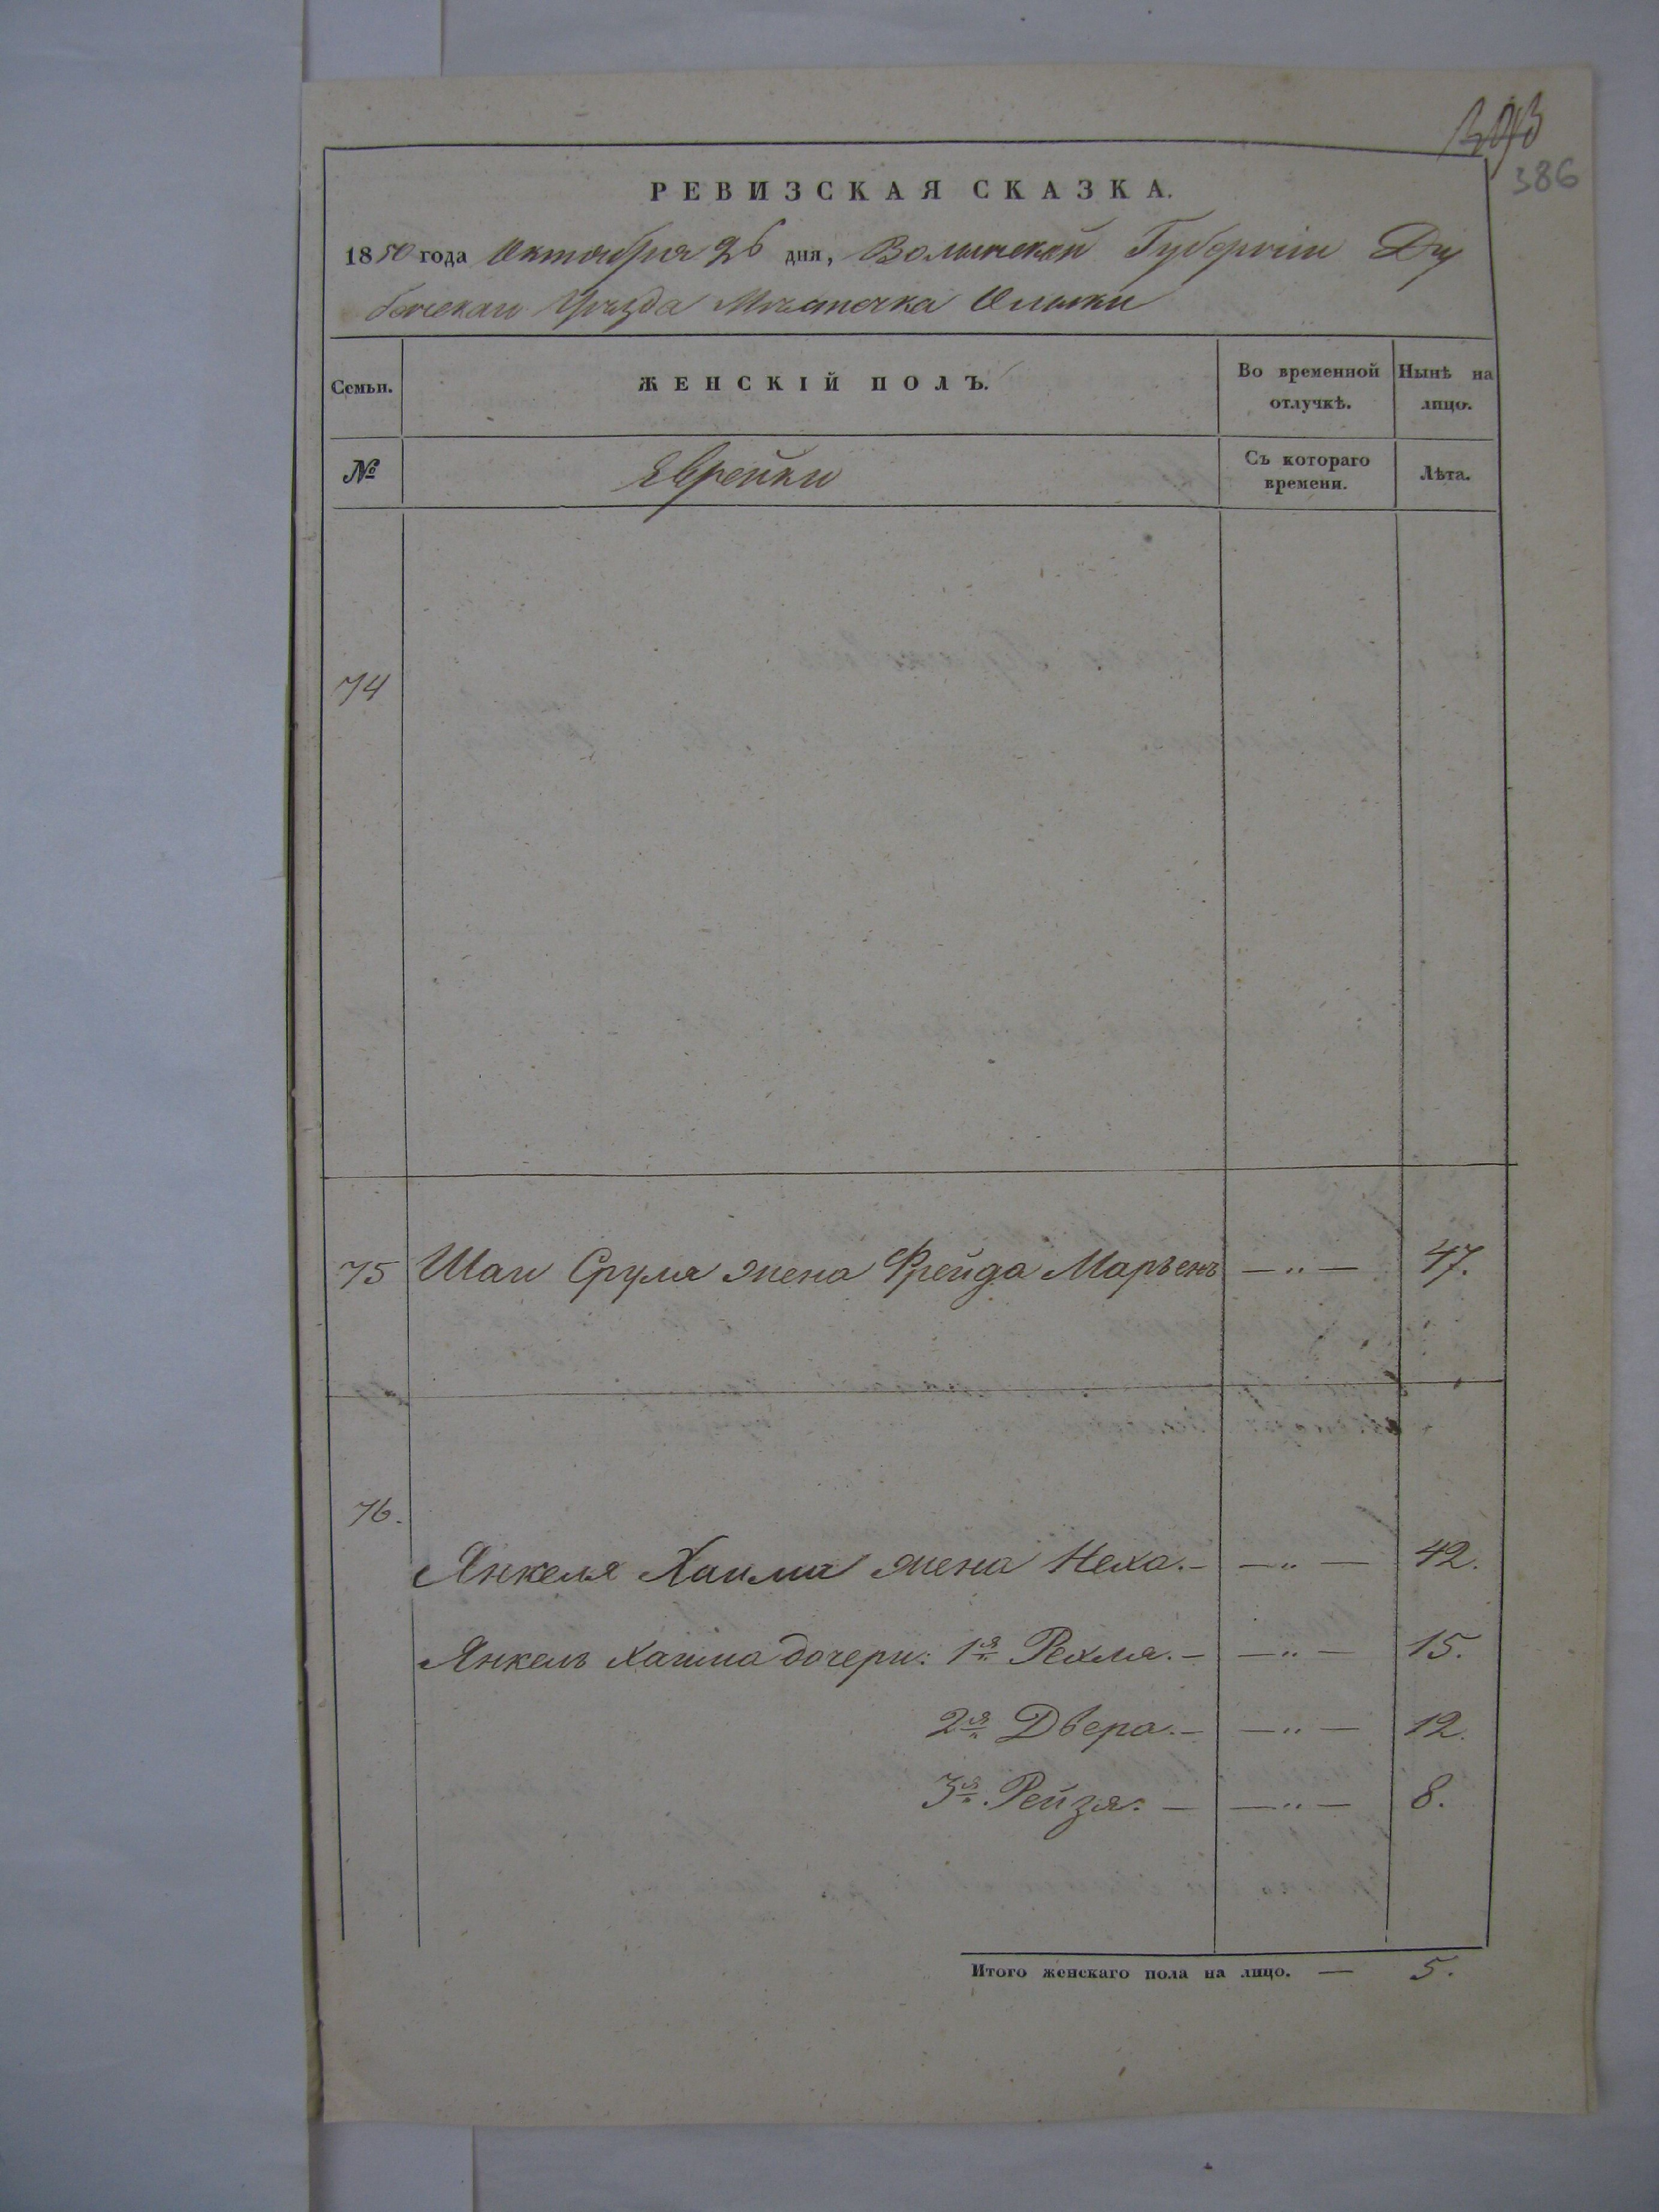 386
РЕВИЗСКАЯ СКАЗКА.
1850 года Октября 26 дня, Волынской Губерніи Ду
бенскаго Уѣзда Мѣстечка Олыки
Семьи. ЖЕНСКІЙ ПОЛЪ. Во временной отлучкѣ. Нынѣ на лицо.
№ Еврейки Съ котораго времени. Лѣта.
74
75 Шаи Сруля жена Фрейда Марьемъ — „ — 47.
76.
Янкеля Хаима жена Неха. — — „ — 42.
Янкель Хаима дочери: 1я Рехля. — — „ — 15.
2я Двера. — — „ — 12.
3я Рейзя. — — „ — 8.
Итого женскаго пола на лицо. — 5.